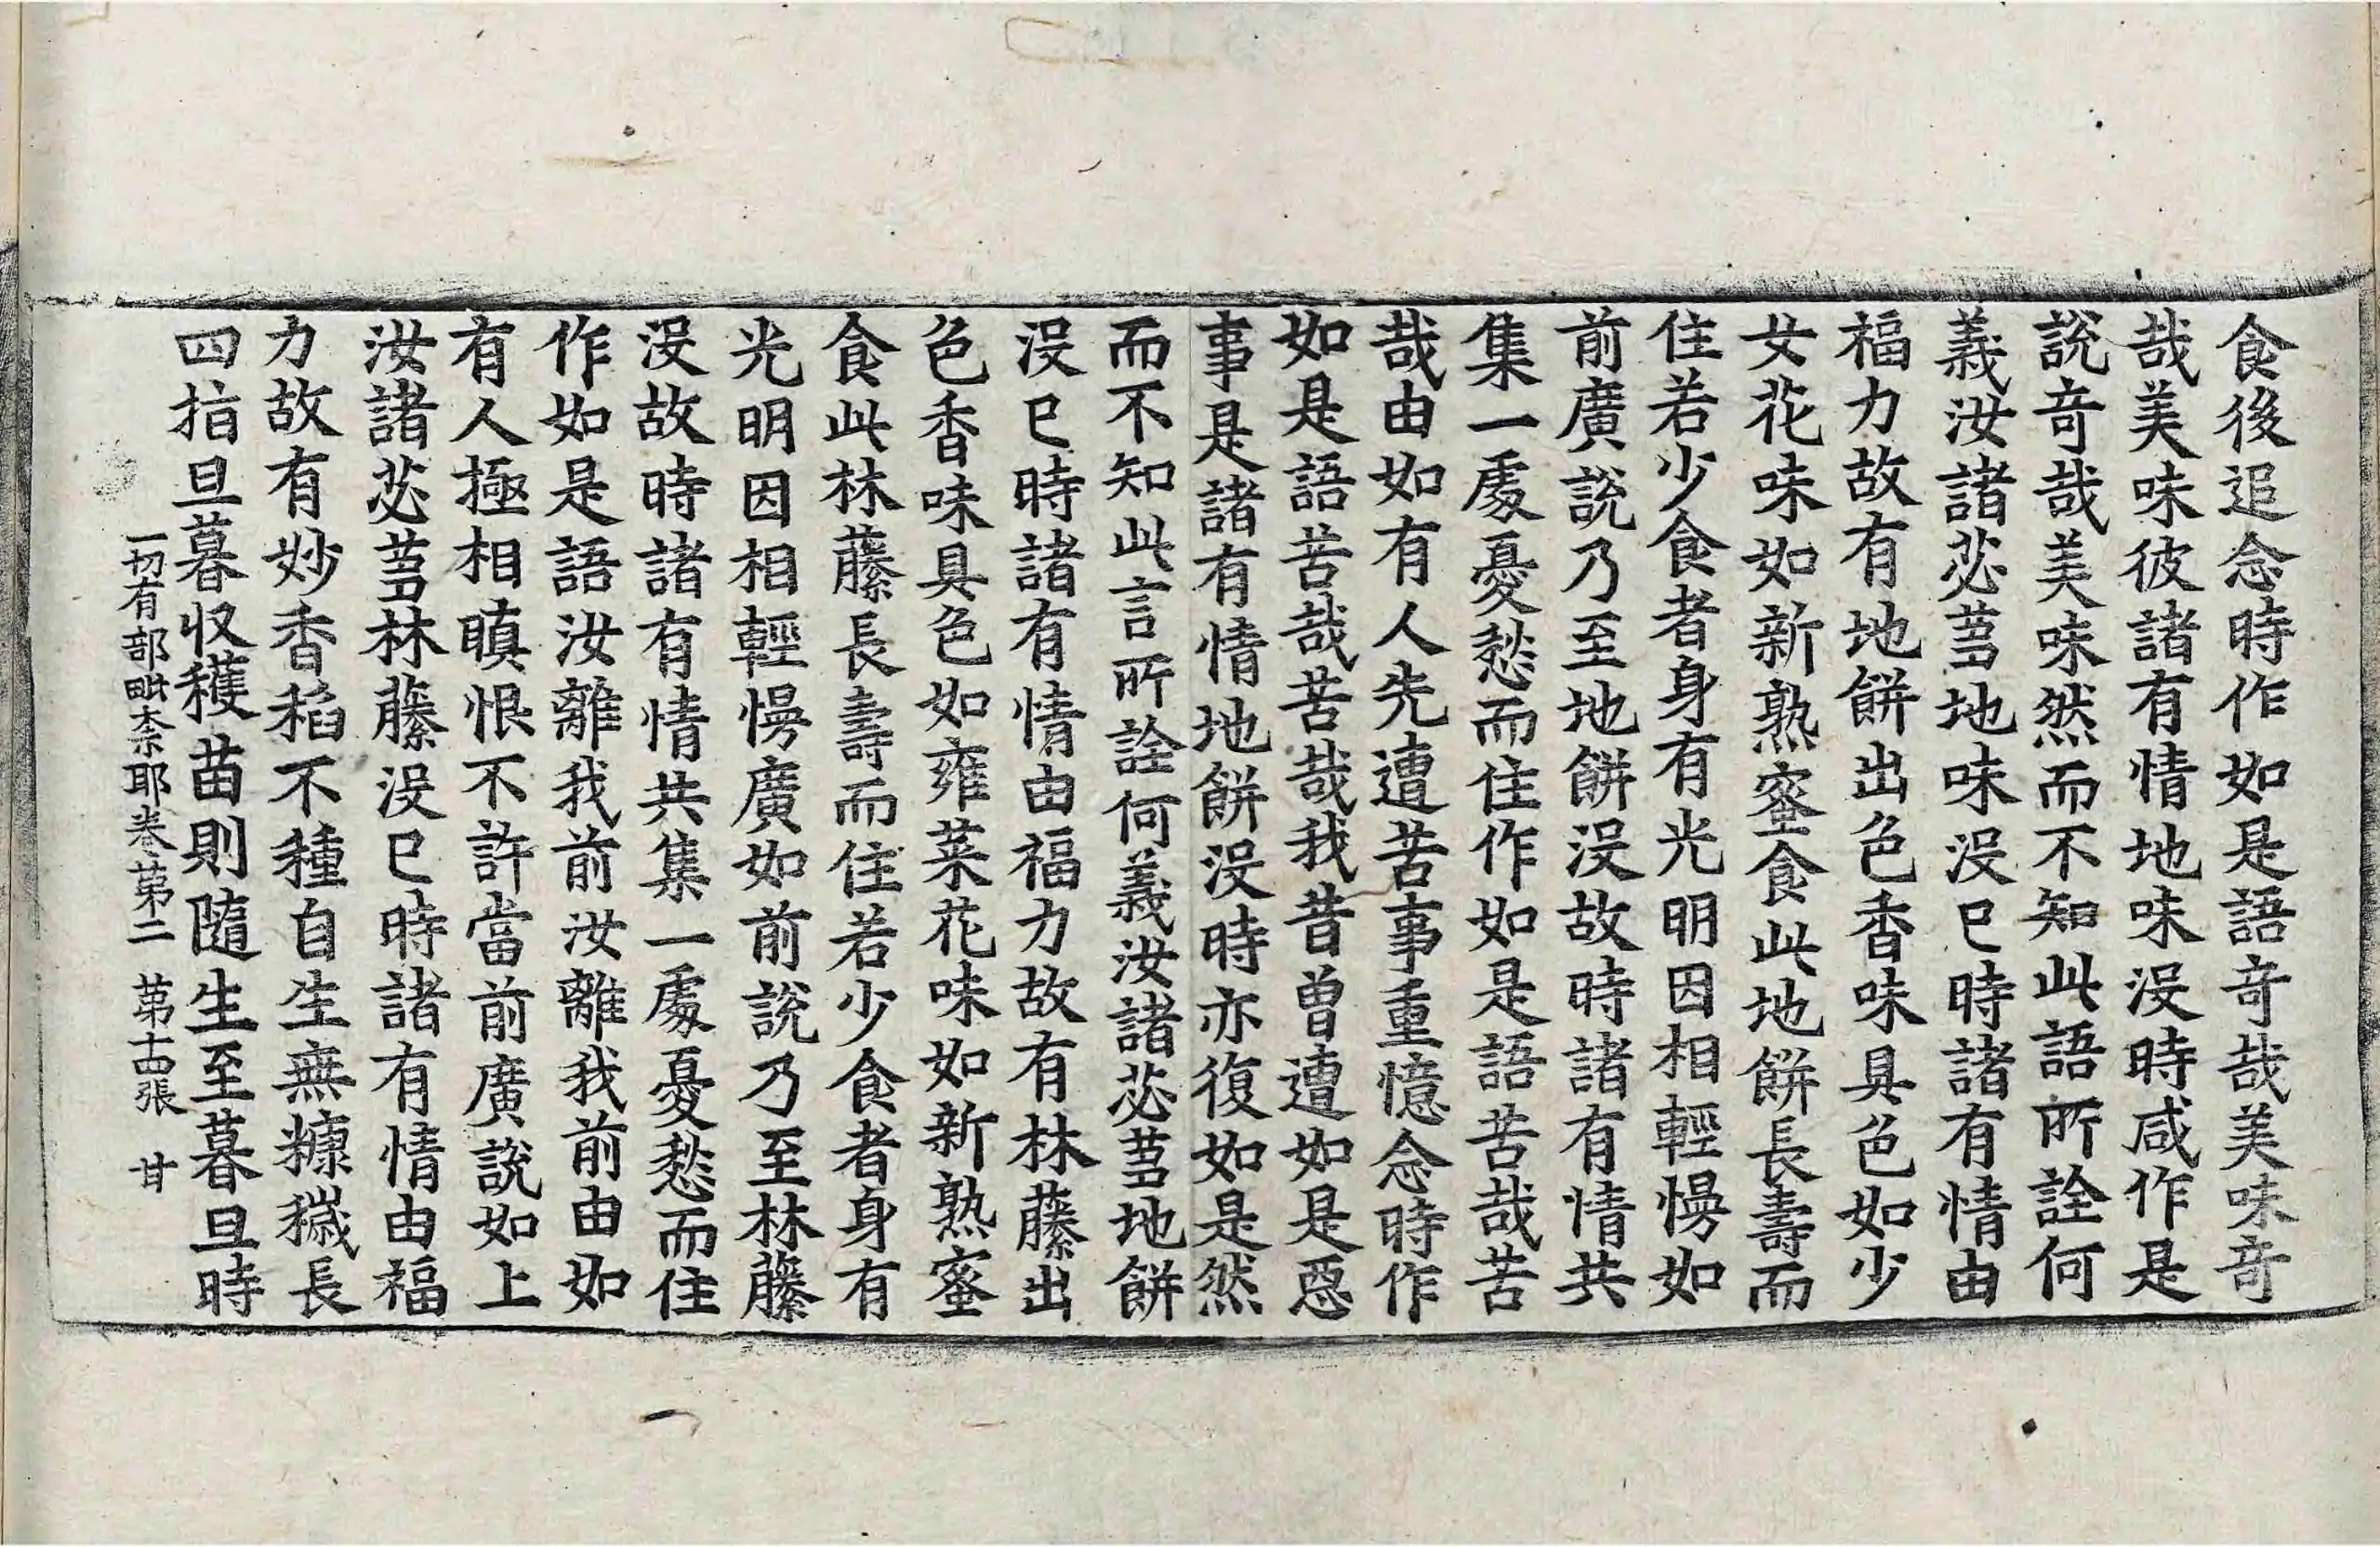 食後追念時作如是語奇哉美味奇
哉美味彼諸有情地味沒時咸作是
說奇哉美味然而不知此語所詮何
義汝諸苾芻地味沒已時諸有情由
福力故有地餅出色香味具色如少
女花味如新熟蜜食此地餅長壽而
住若少食者身有光明因相輕慢如
前廣說乃至地餅沒故時諸有情共
集一處憂愁而住作如是語苦哉苦
哉由如有人先遭苦事重憶念時作
如是語苦哉苦哉我昔曾遭如是惡
事是諸有情地餅沒時亦復如是然
而不知此言所詮何義汝諸苾芻地餅
沒已時諸有情由福力故有林藤出
色香味具色如雍菜花味如新熟蜜
食此林藤長壽而住若少食者身有
光明因相輕慢廣如前說乃至林藤
沒故時諸有情共集一處憂愁而住
作如是語汝離我前汝離我前由如
有人極相瞋恨不許當前廣說如上
汝諸苾芻林藤沒已時諸有情由福
力故有妙香稻不種自生無糠穢長
四指旦暮收穫苗則隨生至暮旦時
一切有部毗柰耶卷第二 第十四張 甘